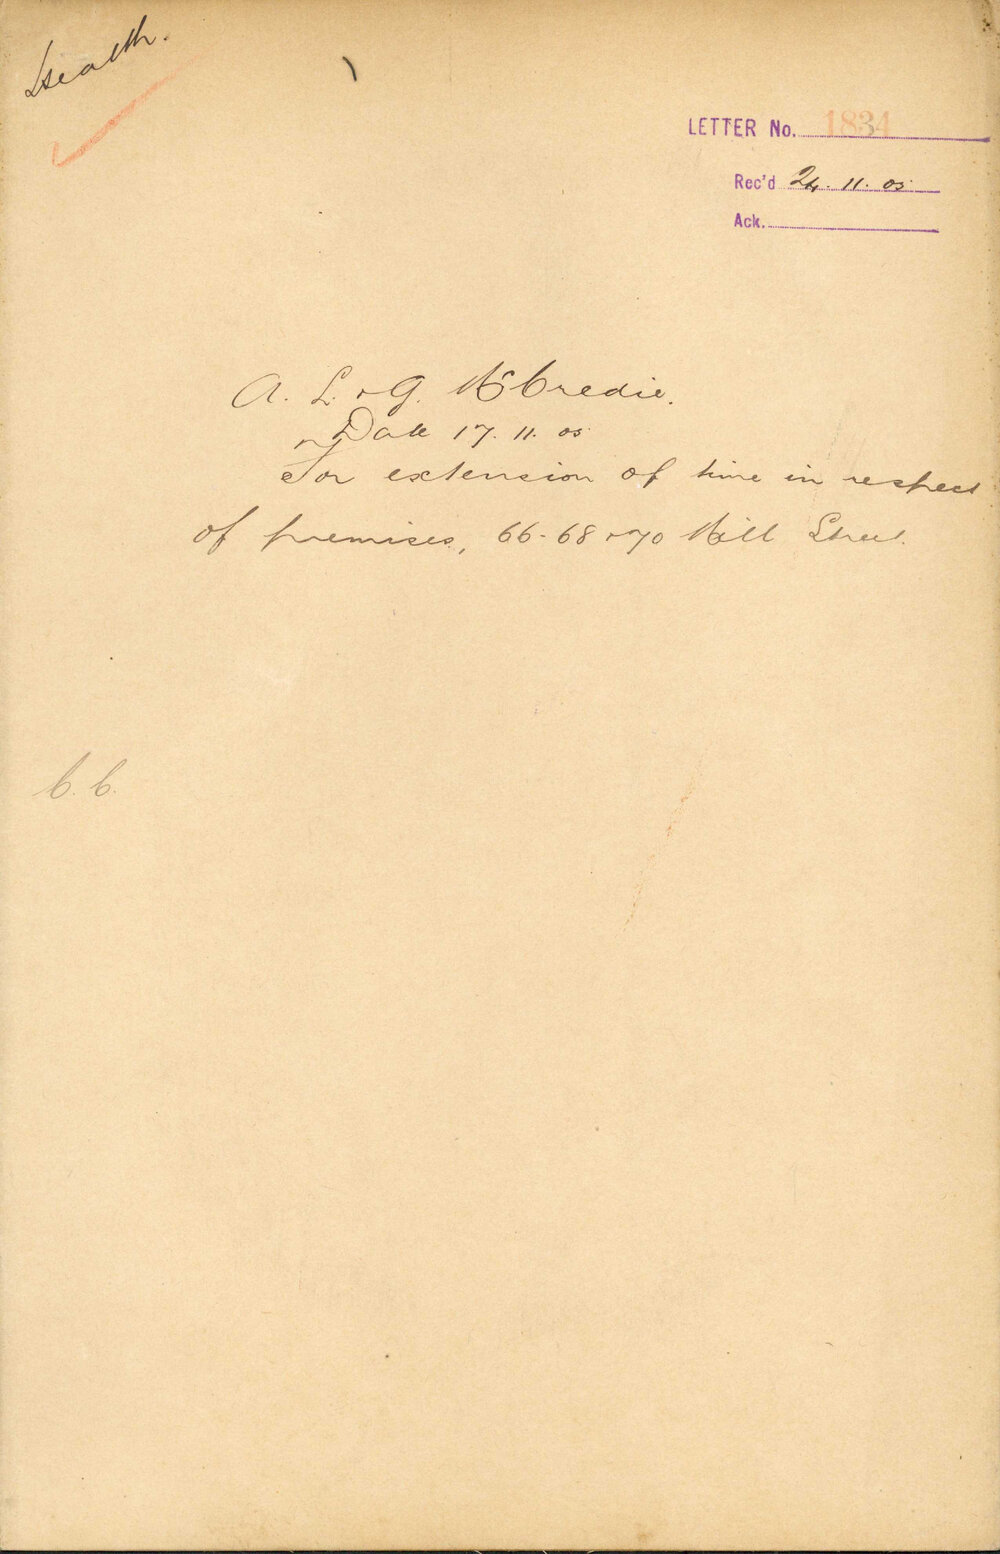 Health.
LETTER No. 1834
Rec'd 24. 11. 05
Ack.
A. L. & G. McCredie.
Date 17. 11. 05
For extension of time in respect
of premises, 66-68 & 70 Mill Street.
C. C.